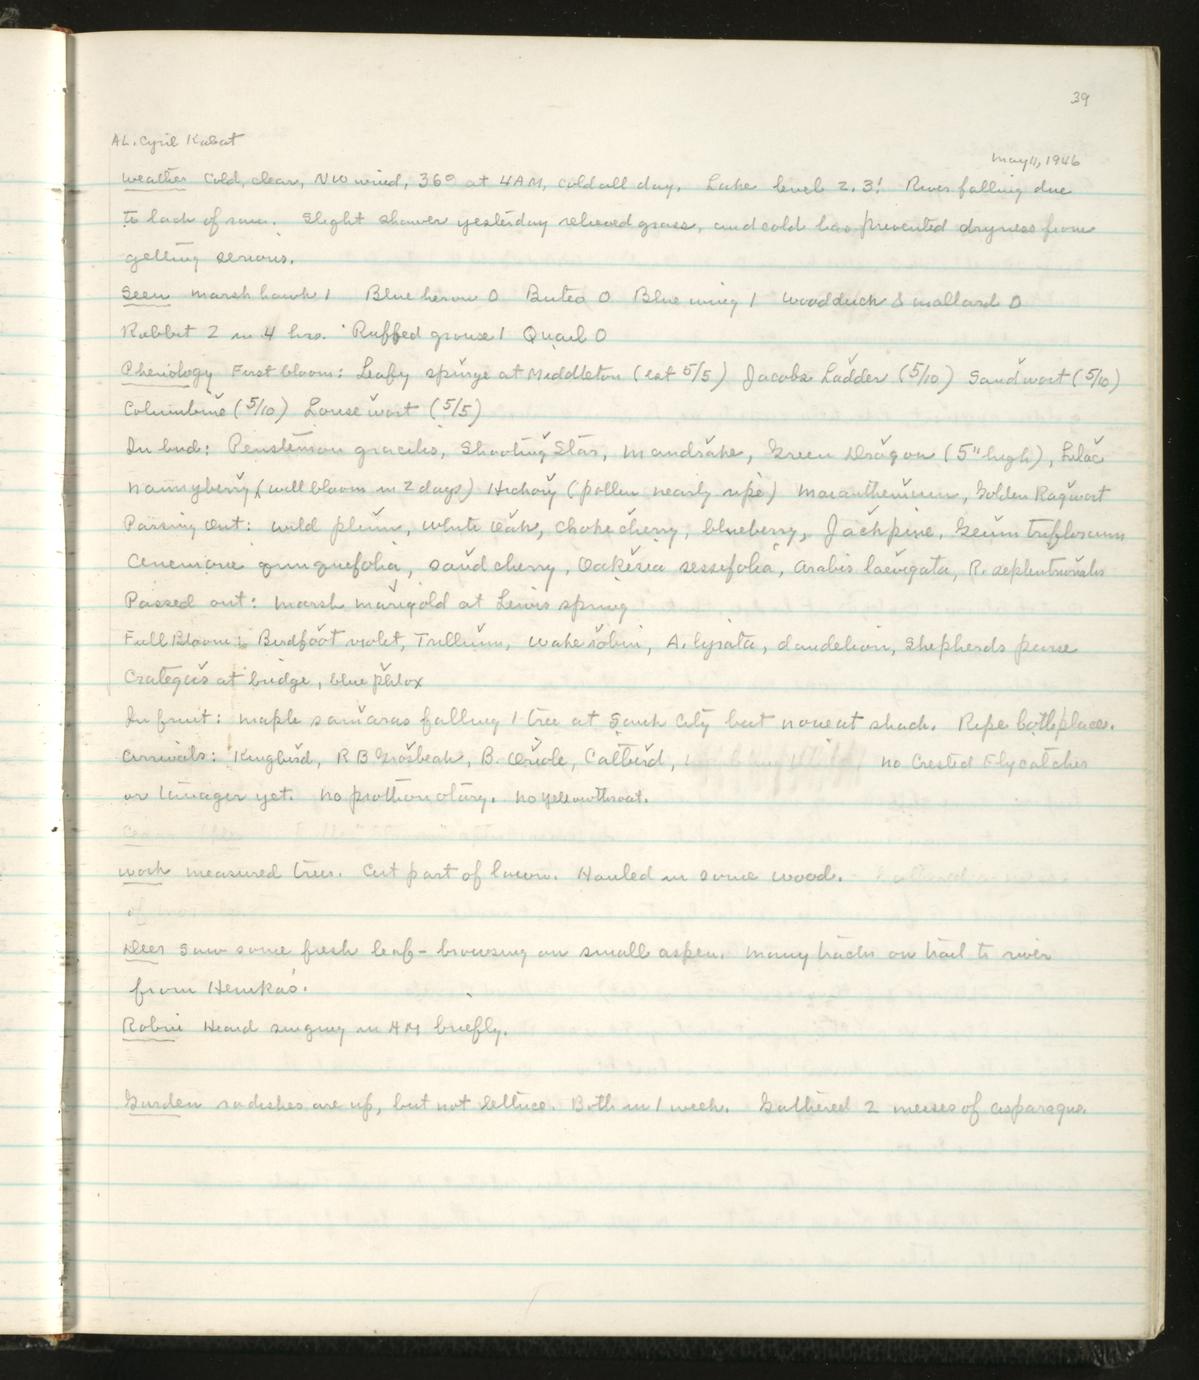 39
AL. Cyril Kabat
May 11, 1946
Weather Cold, clear, NW wind, 36° at 4AM, cold all day. Lake level 2.3! River falling due
to lack of rain. Slight shower yesterday relieved grass, and cold has prevented dryness from
getting serious.
Seen Marsh hawk 1 Blue heron 0 Buteo 0 Blue wing 1 Woodduck & mallard 0
Rabbit 2 in 4 hrs. Ruffed grouse 1 Quail 0
Phenology First bloom: Leafy spurge at Middleton (est 5/5) Jacobs Ladder (5/10) Sandwort (5/10)
Columbine (5/10) Louse wort (5/5)
In bud: Penstemon gracilis, Shooting Star, Mandrake, Green Dragon (5" high), Lilac
Nannyberry (will bloom in 2 days) Hickory (pollen nearly ripe) Maianthemum, Golden Ragwort
Passing Out: wild plum, White Oak, Chokecherry, blueberry, Jackpine, Geum triflorum
Anemone quinquefolia, sand cherry, Oakesia sessifolia, Arabis laevigata, R. septentrionalis
Passed out: Marsh marigold at Lewis spring
Full Bloom: Birdfoot violet, Trillium, Wake robin, A. lyrata, dandelion, Shepherds purse
Crategus at bridge, blue phlox
In fruit: maple samaras falling 1 tree at Sauk City but none at shack. Ripe both places.
Arrivals: Kingbird, RB Grosbeak, B. Oriole, Catbird, no Crested Flycatcher
or tanager yet. No prothonotary. No yellowthroat.
Work measured trees. Cut part of lawn. Hauled in some wood.
Deer Saw some fresh leaf-browsing on small aspen. Many tracks on trail to river
from Hemkas'.
Robin Heard singing in AM briefly.
Garden radishes are up, but not lettuce. Both in 1 week. Gathered 2 messes of asparagus.